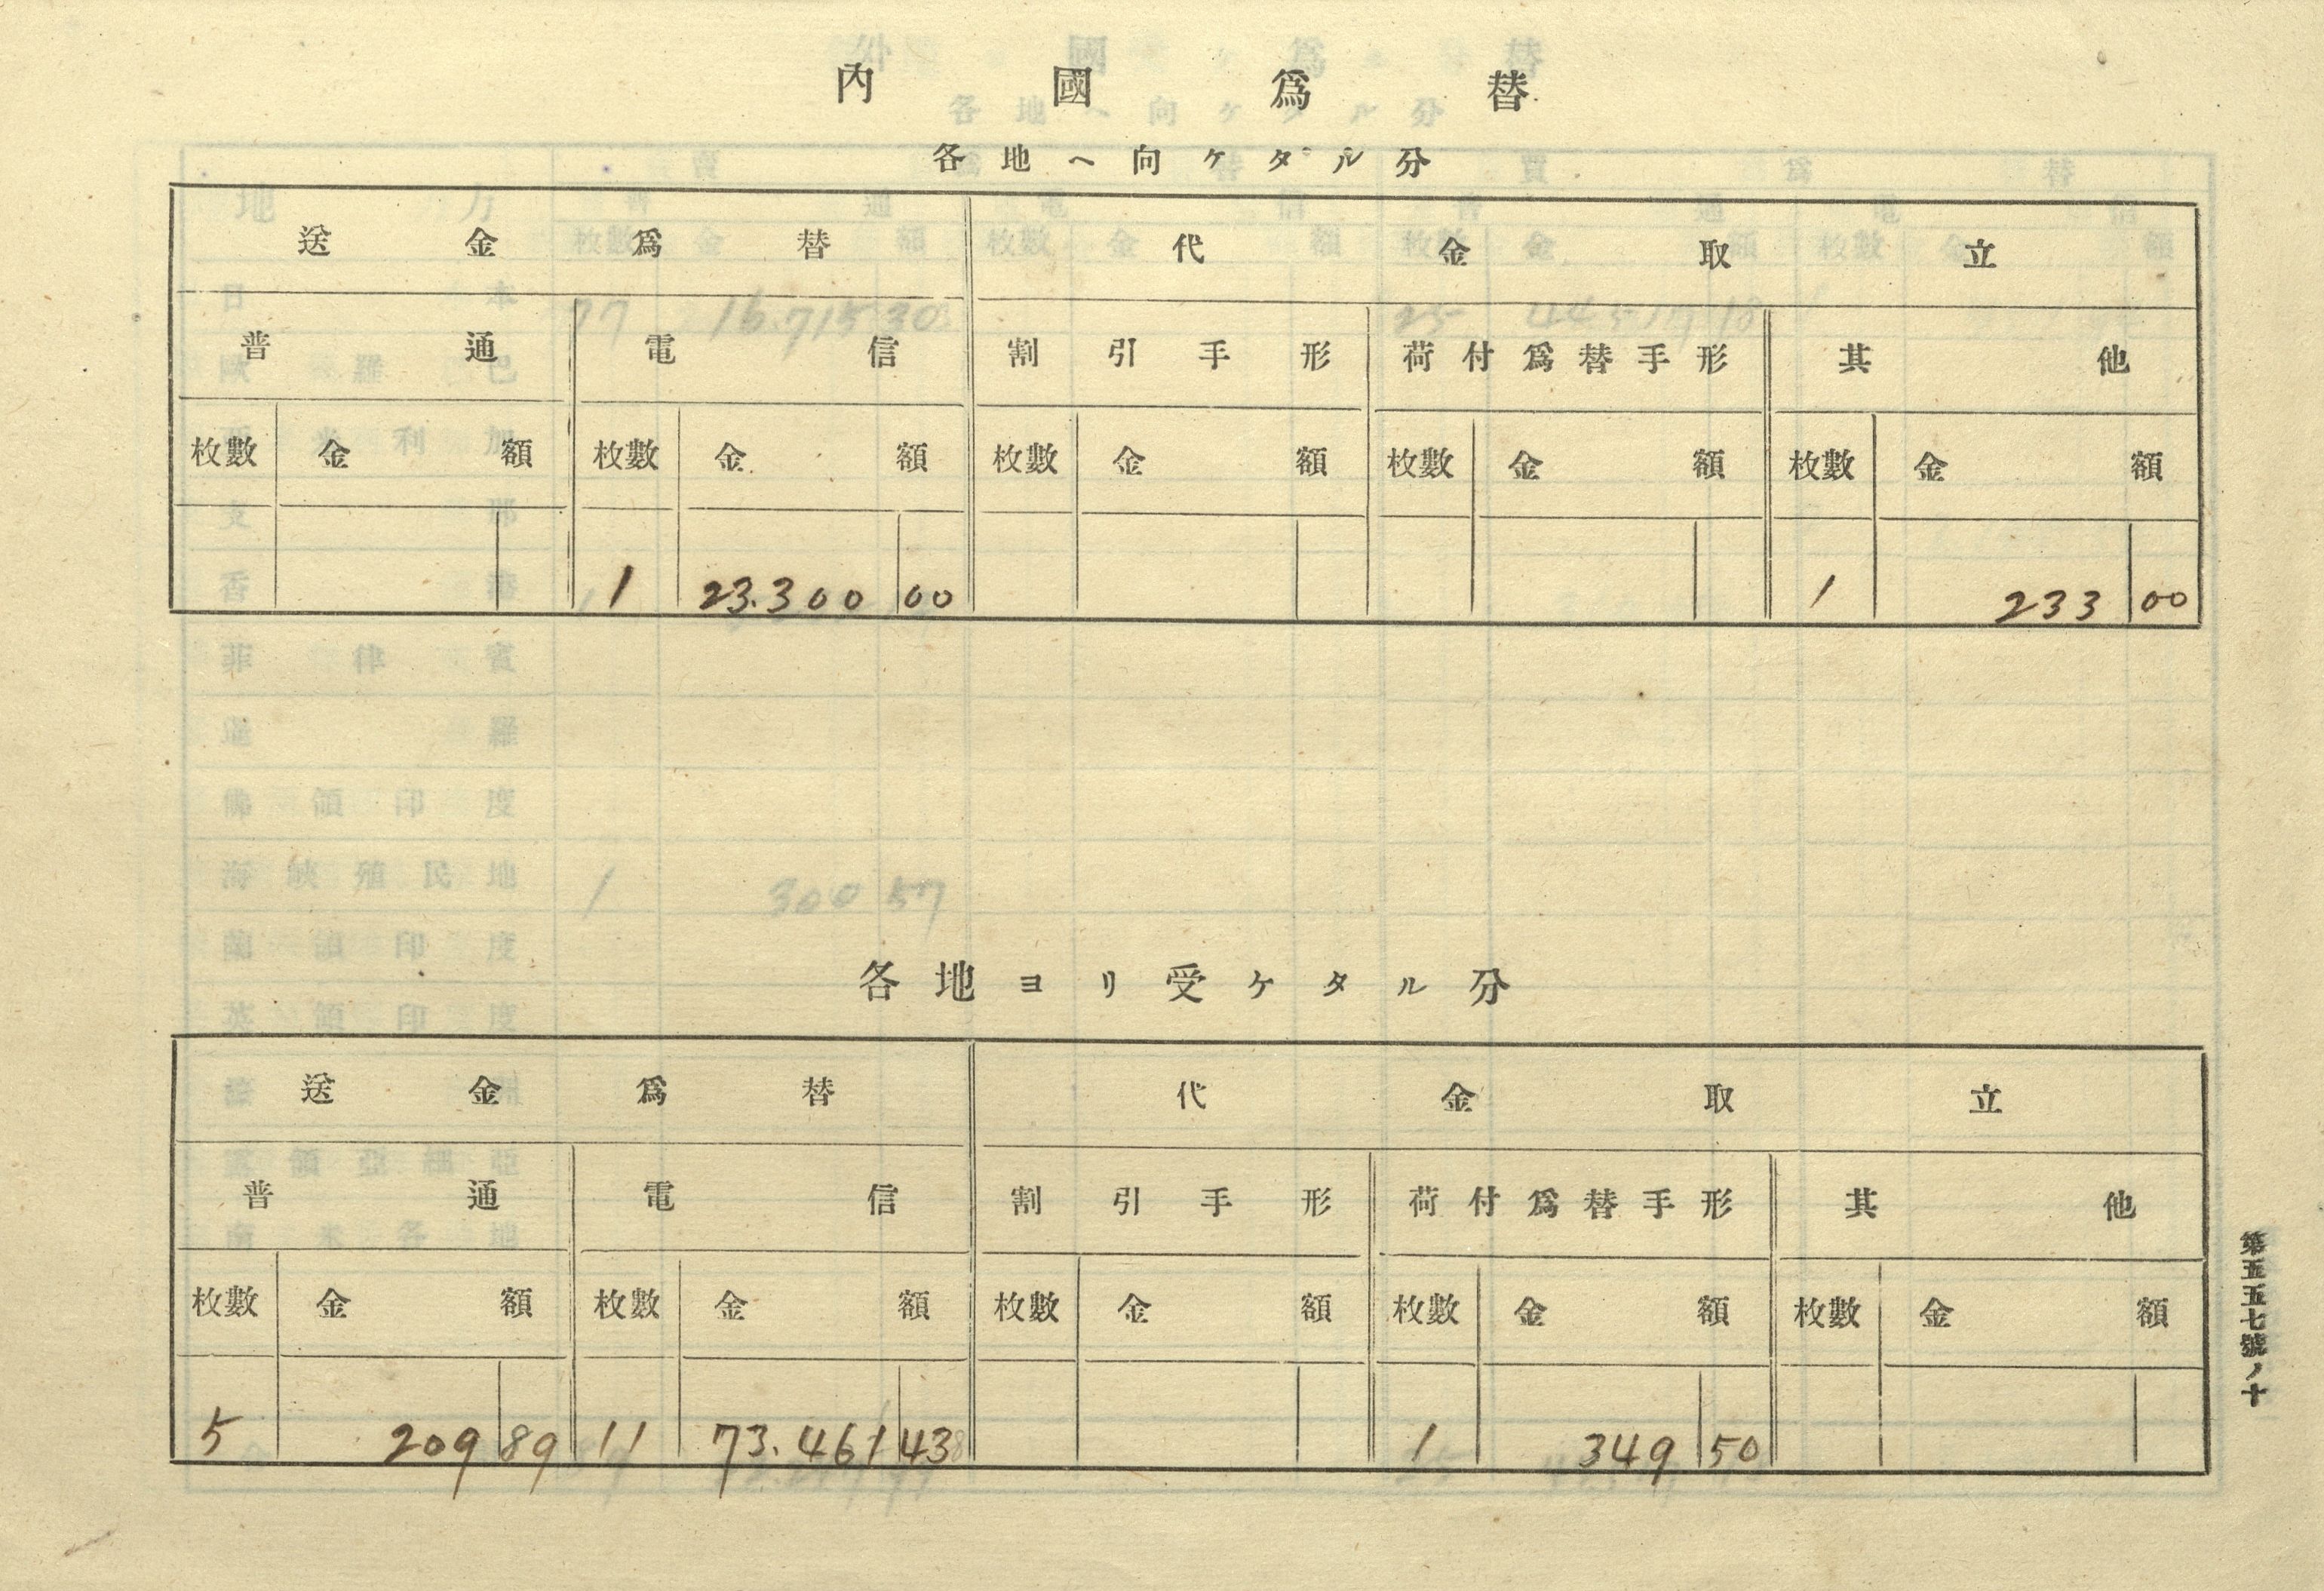 內國爲替
各地ヘ向ケタル分
送金爲替 代金取立
普通 電信 割引手形 荷付爲替手形 其他
枚數 金額 枚數 金額 枚數 金額 枚數 金額 枚數 金額
1 23.300 00 1 233 00
各地ヨリ受ケタル分
送金爲替 代金取立
普通 電信 割引手形 荷付爲替手形 其他
枚數 金額 枚數 金額 枚數 金額 枚數 金額 枚數 金額
5 209 89 11 73.461 43 1 349 50
第五五七號ノ十